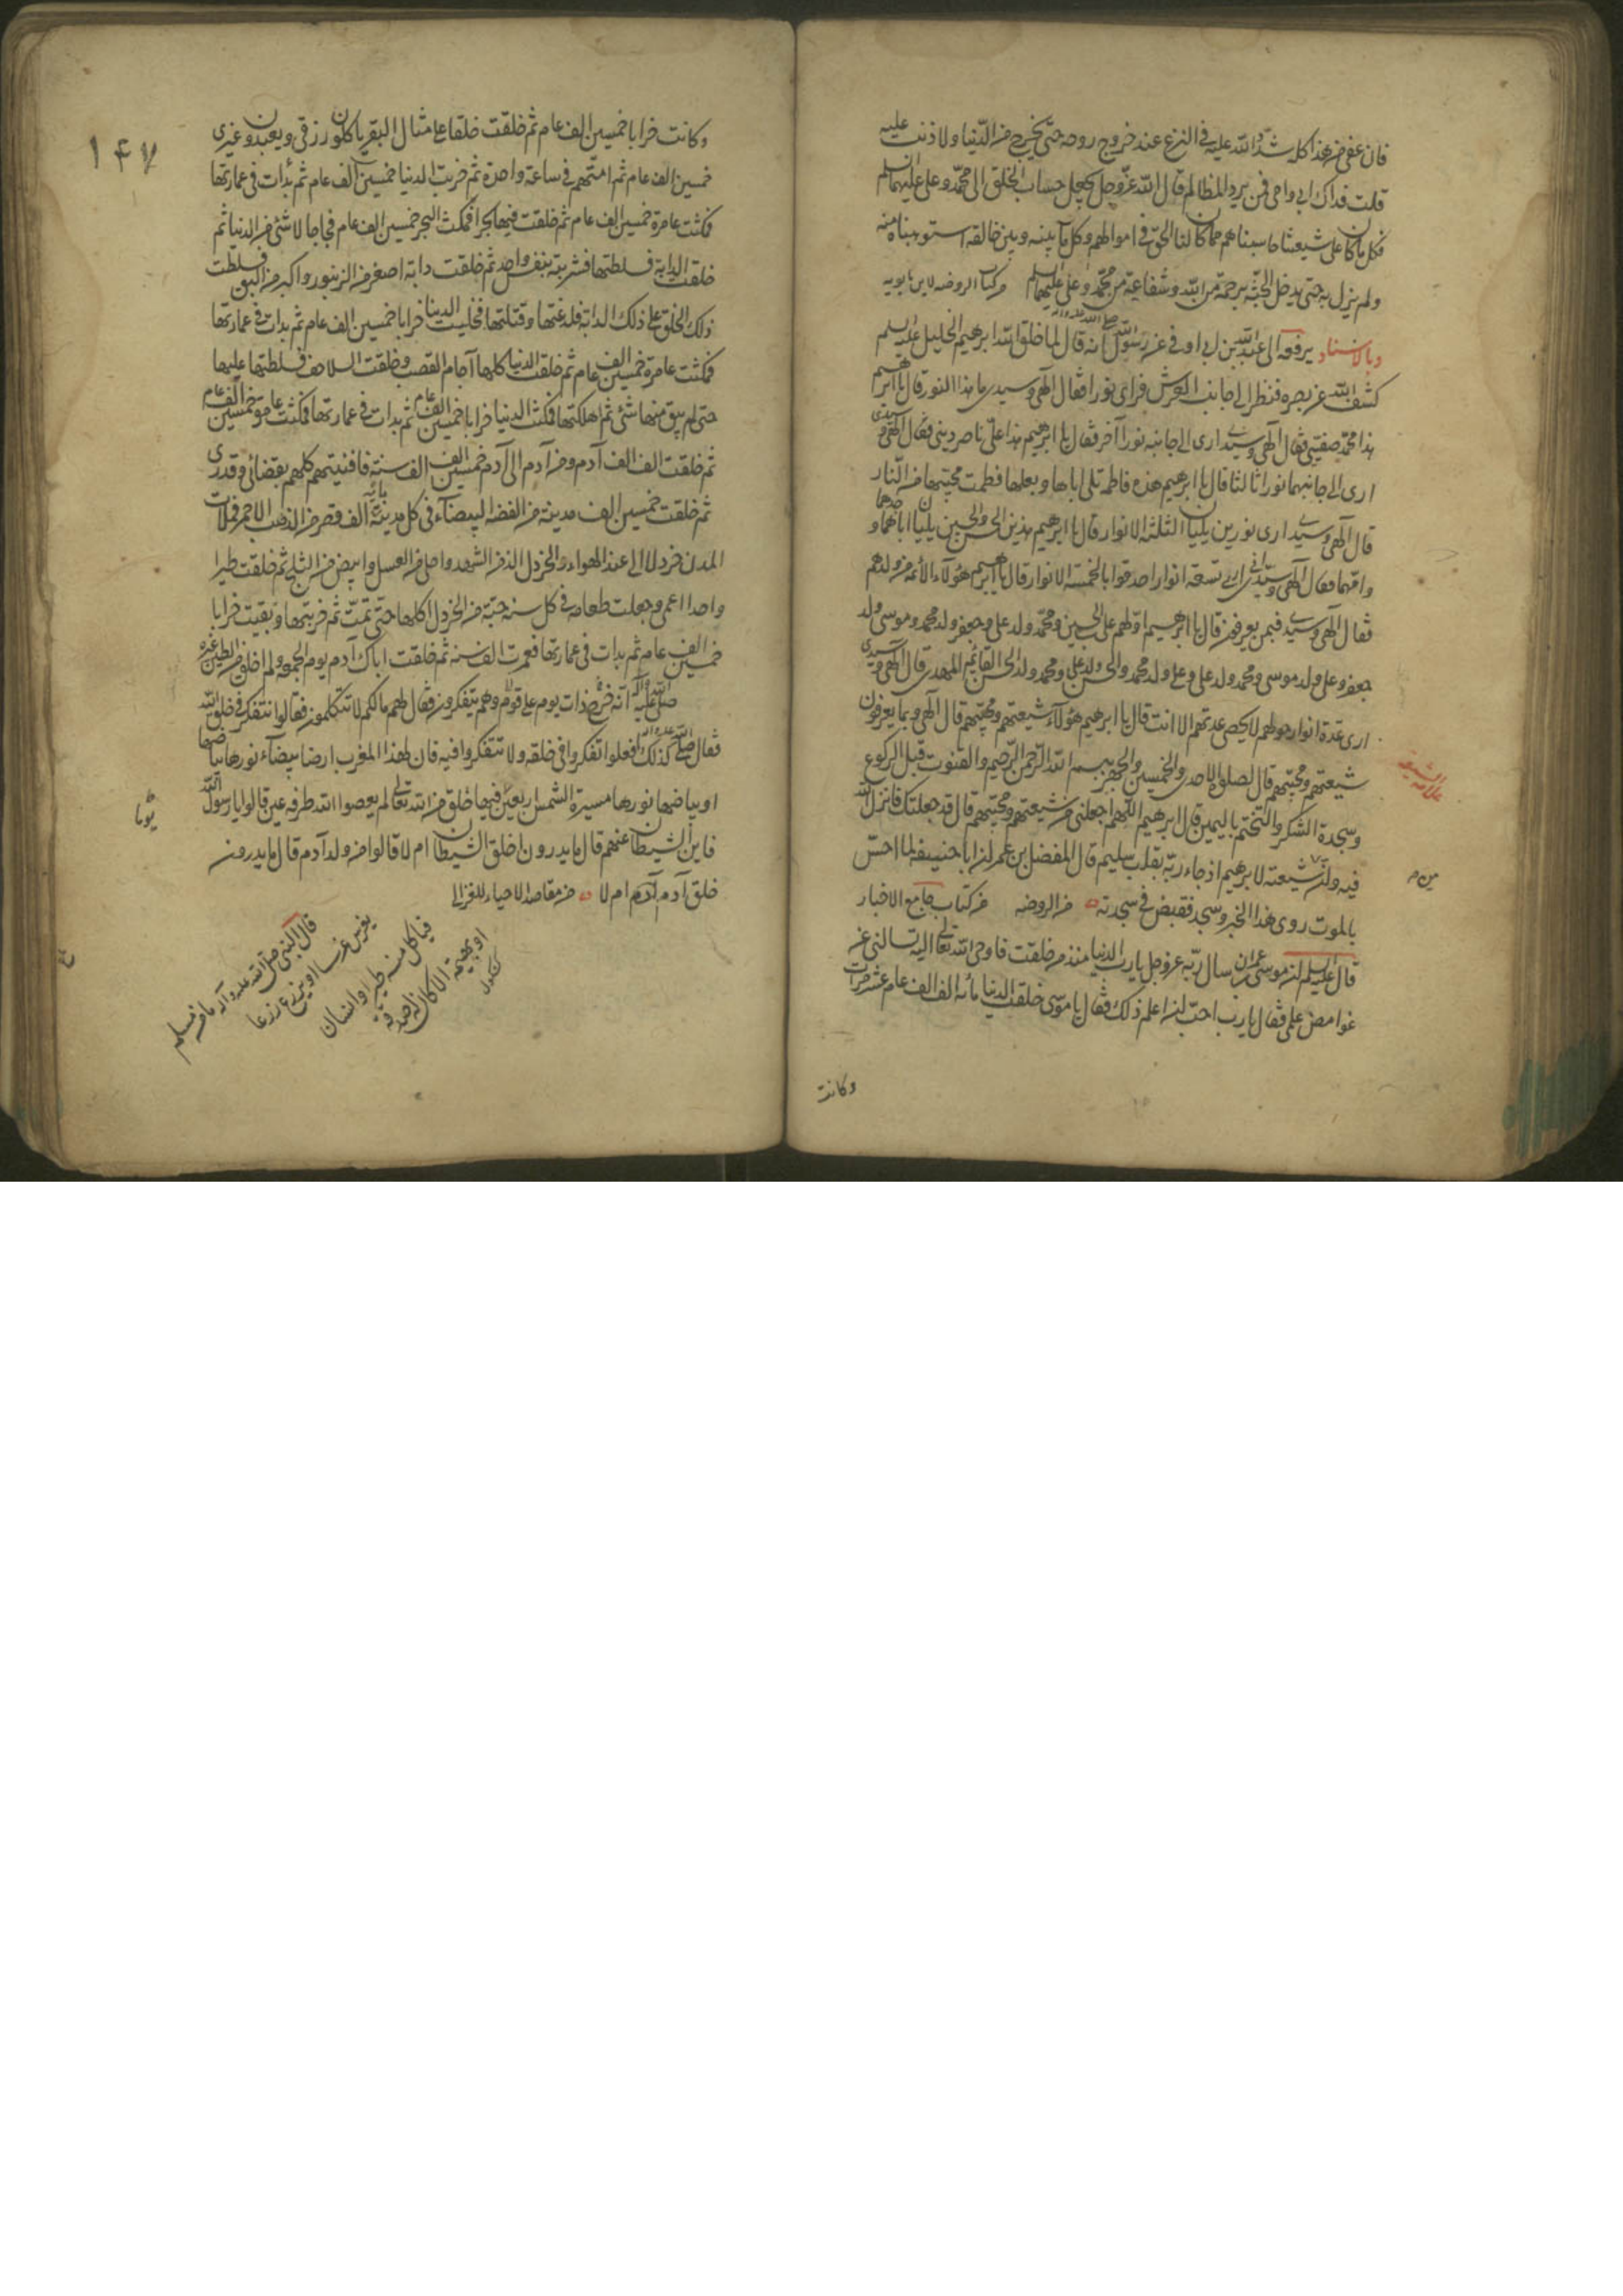 فان عفى من هذا كله شدد الله عليه فى النزع عند خروج روحه حتى يخرج من الدنيا ولا ذنب عليه
قلت فداك ابى وامى فمن يرد المظالم قال الله عز وجل يجعل حساب الخلق الى محمد وعلى عليهما السلم
فكل ما كان على شيعتنا حاسبناهم مما كان لنا الحق فى اموالهم وكل ما بينه وبين خالقه استوهبناه منه
ولم يزل به حتى يدخل الجنة برحمة من الله وشفاعة من محمد وعلى عليهما السلم من كتاب الروضه لابن بابويه
وبالاسناد يرفعه الى عبد الله بن ابى اوفى عن رسول الله صلى الله عليه وآله انه قال لما خلق الله ابرهيم الخليل عليه السلم
كشف الله عن بصره فنظر الى جانب العرش فراى نورا فقال الهى وسيدى ما هذا النور قال يا ابرهيم
هذا محمد صفيى فقال الهى وسيدى ارى الى جانبه نورا آخر فقال يا ابرهيم هذا على ناصر دينى فقال الهى وسيدى
ارى الى جانبهما نورا ثالثا قال يا ابرهيم هذه فاطمه تلى اباها وبعلها فطمت محبيها من النار
قال الهى وسيدى ارى نورين يليان الثلثة الانوار قال يا ابرهيم هذين الحسن والحسين يليان اباهما وجدهما
وامهما فقال الهى وسيدى انى ارى تسعة انوار احدقوا بالخمسة الانوار قال يا ابرهيم هؤلاء الائمه من ولدهم
فقال الهى وسيدى فبمن يعرفون قال يا ابرهيم اولهم على بن الحسين ومحمد ولد على وجعفر ولد محمد وموسى ولد
جعفر وعلى ولد موسى ومحمد ولد على وعلى ولد محمد والحسن ولد على ومحمد ولد الحسن القائم المهدى قال الهى وسيدى
ارى عدة انوار حولهم لا يحصى عدتهم الا انت قال يا ابرهيم هؤلاء شيعتهم ومحبيهم قال الهى وبما يعرفون
شيعتهم ومحبيهم قال لصلوة الاحدى والخمسين والجهر ببسم الله الرحمن الرحيم والقنوت قبل الركوع
علامة الشيعه
وسجدة الشكر والتختم باليمين قال ابرهيم اللهم اجعلنى من شيعتهم ومحبيهم قال قد جعلتك فانزل الله
فيه وان من شيعته لابرهيم اذ جاء ربه بقلب سليم قال المفضل بن عمر ان ابا حنيفة لما احس
بالموت روى هذا الخبر وسجد فقبض فى سجدته من الروضه من كتاب جامع الاخبار
قال عليه السلم ان موسى بن عمران سال ربه عز وجل يا رب الدنيا منذ كم خلقت فاوحى الله تعالى اليه تسالنى عن
غوامض علمى فقال يا رب احب ان اعلم ذلك فقال يا موسى خلقت الدنيا مائة الف الف عام عشر مرات
وكانت
١٤٧
وكانت خرابا خمسين الف عام ثم خلقت خلقا على مثال البقر ياكلون رزقى ويعبدون غيرى
خمسين الف عام ثم امتهم فى ساعة واحدة ثم خربت الدنيا خمسين الف عام ثم بدأت فى عمارتها
فمكثت عامرة خمسين الف عام ثم خلقت فيها بحرا فمكث البحر خمسين الف عام فجاجا لا شئ من الدنيا ثم
خلقت الدابة فسلطتها فشربته بنفس واحد ثم خلقت دابة اصغر من الزنبور واكبر من البق فسلطت
ذلك الخلق على ذلك الدابة فلدغتها وقتلتها فخليت الدنيا خرابا خمسين الف عام ثم بدات فى عمارتها
فمكثت عامرة خمسين الف عام ثم خلقت الدنيا كلها آجام القصب وخلقت السلاحف فسلطتها عليها
حتى لم يبق منها شئ ثم اهلكتها فمكثت الدنيا خرابا خمسين الف عام ثم بدات فى عمارتها فمكثت عامرة خمسين الف عام
ثم خلقت الف الف آدم ومن آدم الى آدم خمسين الف الف سنة فافنيتهم كلهم بقضائى وقدرى
ثم خلقت خمسين الف مدينة من الفضة البيضاء فى كل مدينة مائة الف قصر من الذهب الاحمر فملات
المدن خردلا الى عند الهواء والخردل الذ من الشهد واحلى من العسل وابيض من الثلج ثم خلقت طيرا
واحدا اعمى وجعلت طعامه فى كل سنة حبة من الخردل اكلها حتى تمت ثم خربتها وبقيت خرابا
خمسين الف عام ثم بدات فى عمارتها فعمرت الف سنه ثم خلقت اباك آدم يوم الجمعة ولم اخلق من الطين غيره
صلى الله عليه وآله انه خرج ذات يوم على قوم وهم يتفكرون فقال لهم مالكم لا تتكلمون فقالوا نتفكر فى خلق الله
فقال صلى الله عليه وآله كذلك فافعلوا تفكروا فى خلقه ولا تتفكروا فيه فان لهذا المغرب ارضا بيضاء نورها بياضها
او بياضها نورها مسيرة الشمس اربعين فيها خلق من الله تعالى لم يعصوا الله طرفه عين قالوا يا رسول الله
يومًا
فاين الشيطان عنهم قال ما يدرون اخلق الشيطان ام لا قالوا من ولد آدم قال ما يدرون
خلق آدم ام لا من مقاصد الاحياء للغزالى
قال النبى صلى الله عليه وآله ما من مسلم
يغرس غرسا او يزرع زرعا
فياكل منه طير او انسان
او بهيمة الا كان له صدقة
كشكول